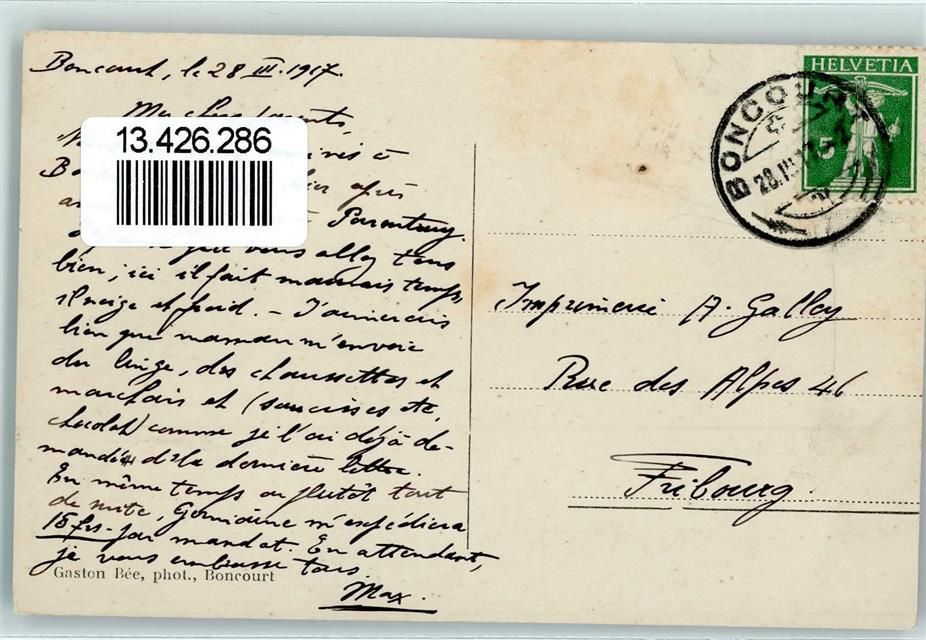 Boncourt, le 28 III. 1917.
Mes chers parents,
13.426.286
à
après
à Porrentruy.
que vous allez tous
bien; ici il fait mauvais temps,
il neige et froid. – J'aimerais
bien que maman m'envoie
du linge, des chaussettes et
et (saucisses etc,
chocolat) comme je l'ai déjà de-
mandé ds la dernière lettre.
En même temps ou plutôt tout
de suite, Germaine m'expédiera
15 frs. par mandat. En attendant,
je vous embrasse tous
Max.
Gaston Bée, phot., Boncourt
HELVETIA
5
BONCOURT
28.III.17
Imprimerie A. Galley
Rue des Alpes 46
Fribourg.